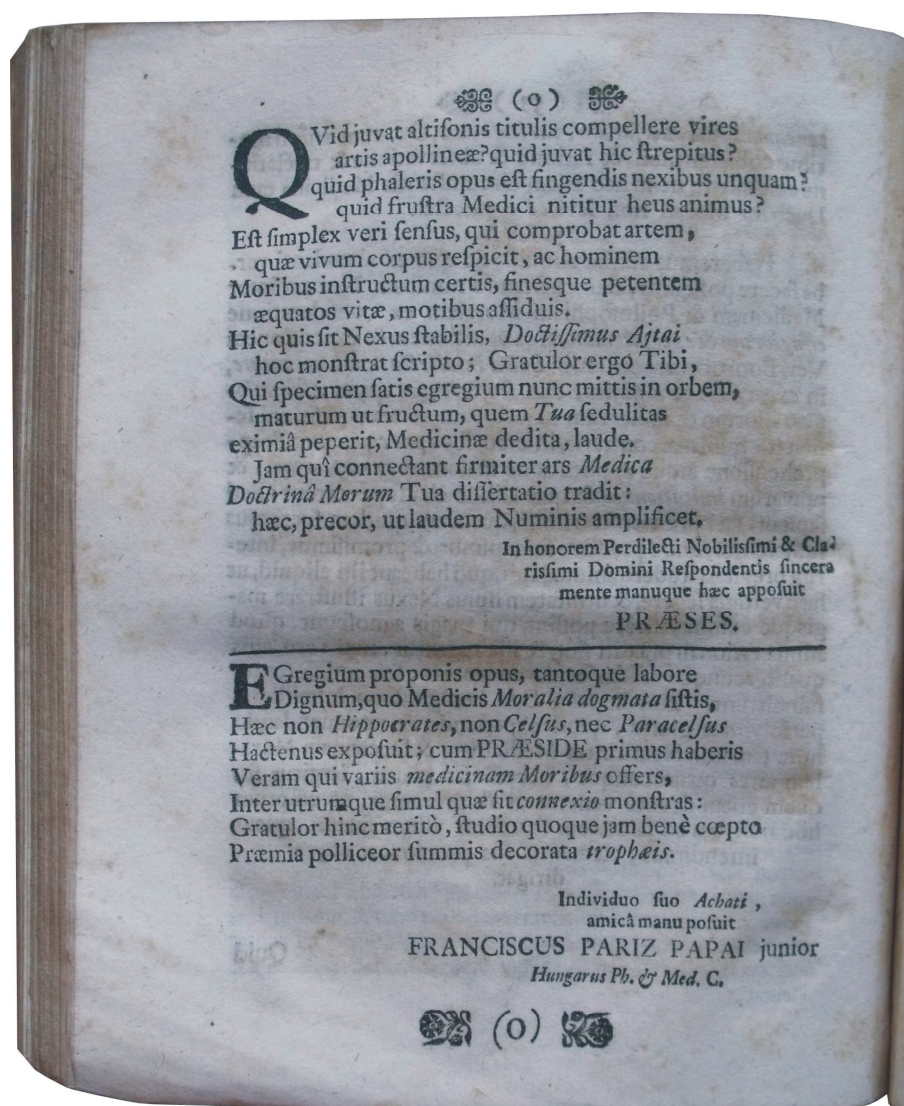 (o)
QVid juvat altiſonis titulis compellere vires
artis apollineæ?quid juvat hic ſtrepitus?
quid phaleris opus eſt fingendis nexibus unquam?
quid fruſtra Medici nititur heus animus?
Eſt ſimplex veri ſenſus, qui comprobat artem,
quæ vivum corpus reſpicit, ac hominem
Moribus inſtructum certis, fineſque petentem
æquatos vitæ, motibus aſſiduis.
Hic quis ſit Nexus ſtabilis, Doctiſſimus Ajtai
hoc monſtrat ſcripto; Gratulor ergo Tibi,
Qui ſpecimen ſatis egregium nunc mittis in orbem,
maturum ut fructum, quem Tua ſedulitas
eximiâ peperit, Medicinæ dedita, laude.
Jam quî connectant firmiter ars Medica
Doctrinâ Morum Tua diſſertatio tradit:
hæc, precor, ut laudem Numinis amplificet.
In honorem Perdilecti Nobiliſſimi & Cla-
riſſimi Domini Reſpondentis ſincera
mente manuque hæc appoſuit
PRÆSES.
EGregium proponis opus, tantoque labore
Dignum,quo Medicis Moralia dogmata ſiſtis,
Hæc non Hippocrates, non Celſus, nec Paracelſus
Hactenus expoſuit; cum PRÆSIDE primus haberis
Veram qui variis medicinam Moribus offers,
Inter utrumque ſimul quæ ſit connexio monſtras:
Gratulor hinc meritò, ſtudio quoque jam benè cœpto
Præmia polliceor ſummis decorata trophæis.
Individuo ſuo Achati,
amicâ manu poſuit
FRANCISCUS PARIZ PAPAI junior
Hungarus Ph. & Med. C.
(O)